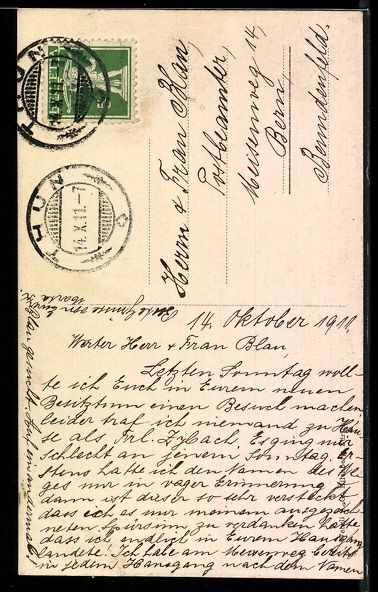 HELVETIA
THUN
14.X.11.-7
THUN
Herrn & Frau Blau,
Postbeamter,
Meisenweg 14,
Bern,
Beundenfeld.
14. Oktober 1911.
Werter Herr & Frau Blau,
Letzten Sonntag woll-
te ich Euch in Eurem neuen
Besitztum einen Besuch machen,
leider traf ich niemand zu Hau-
se als Frl. Zybach. Es ging mir
schlecht an jenem Sonntag. Er-
stens hatte ich den Namen des We-
ges nur in vager Erinnerung &
dann ist dieser so sehr versteckt,
dass ich es nur meinem ausgezeich-
neten Spürsinn zu verdanken hatte,
dass ich endlich in Eurem Hause
landete! Ich habe am Meisenweg
in jedem Hauseingang nach dem Namen
Blau gesucht.
Beste Grüsse von